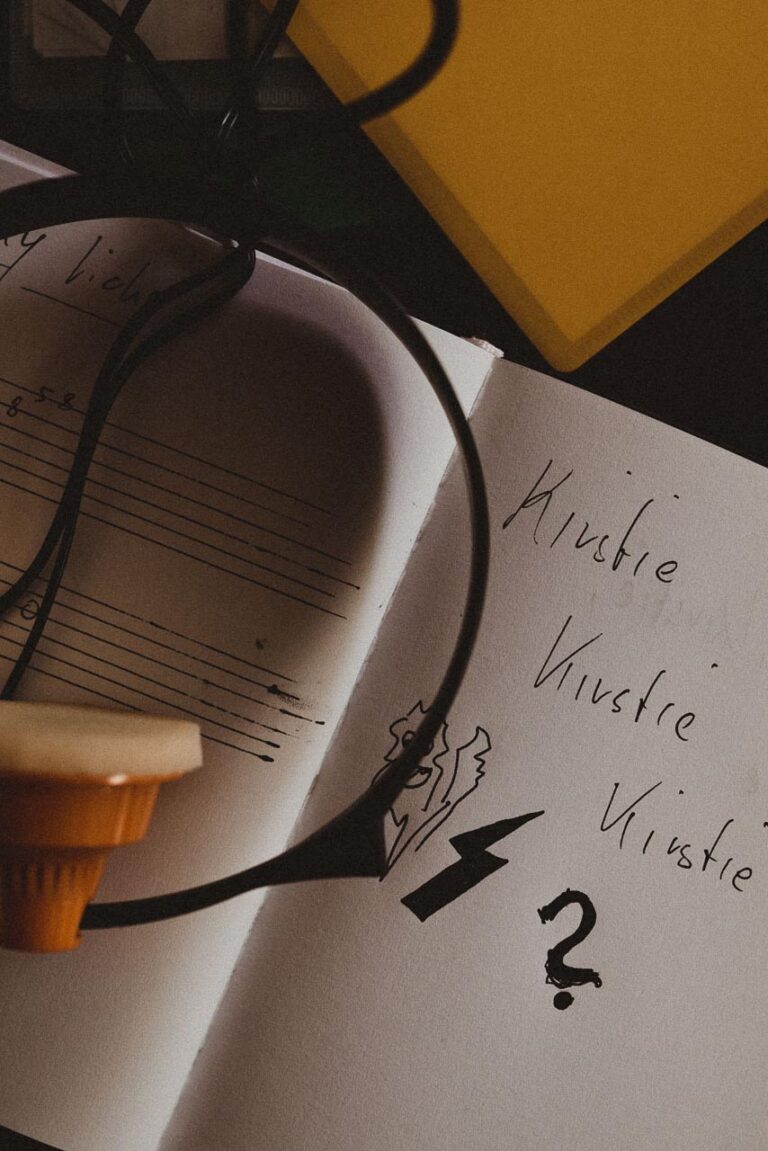 8 58
Kirstie
Kirstie
Kirstie
?